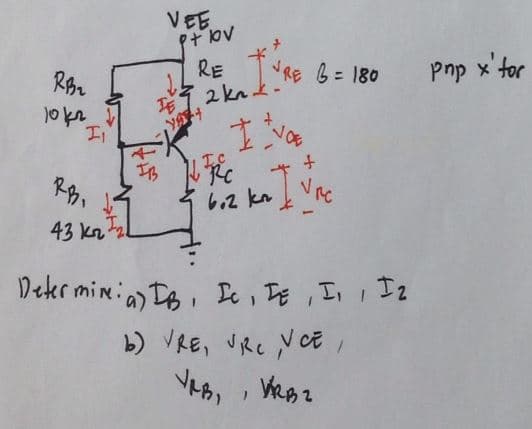 VEE
+ 10V
RE
2kΩ
+
VRE
-
β = 180
pnp x'tor
RB2
10kΩ
I1
IE
VBE +
-
+
VCE
-
IB
IC
RC
6.2 kΩ
+
VRC
-
RB1
43 kΩ
I2
Determine: a) IB, IC, IE, I1, I2
b) VRE, VRC, VCE,
VRB1, VRB2